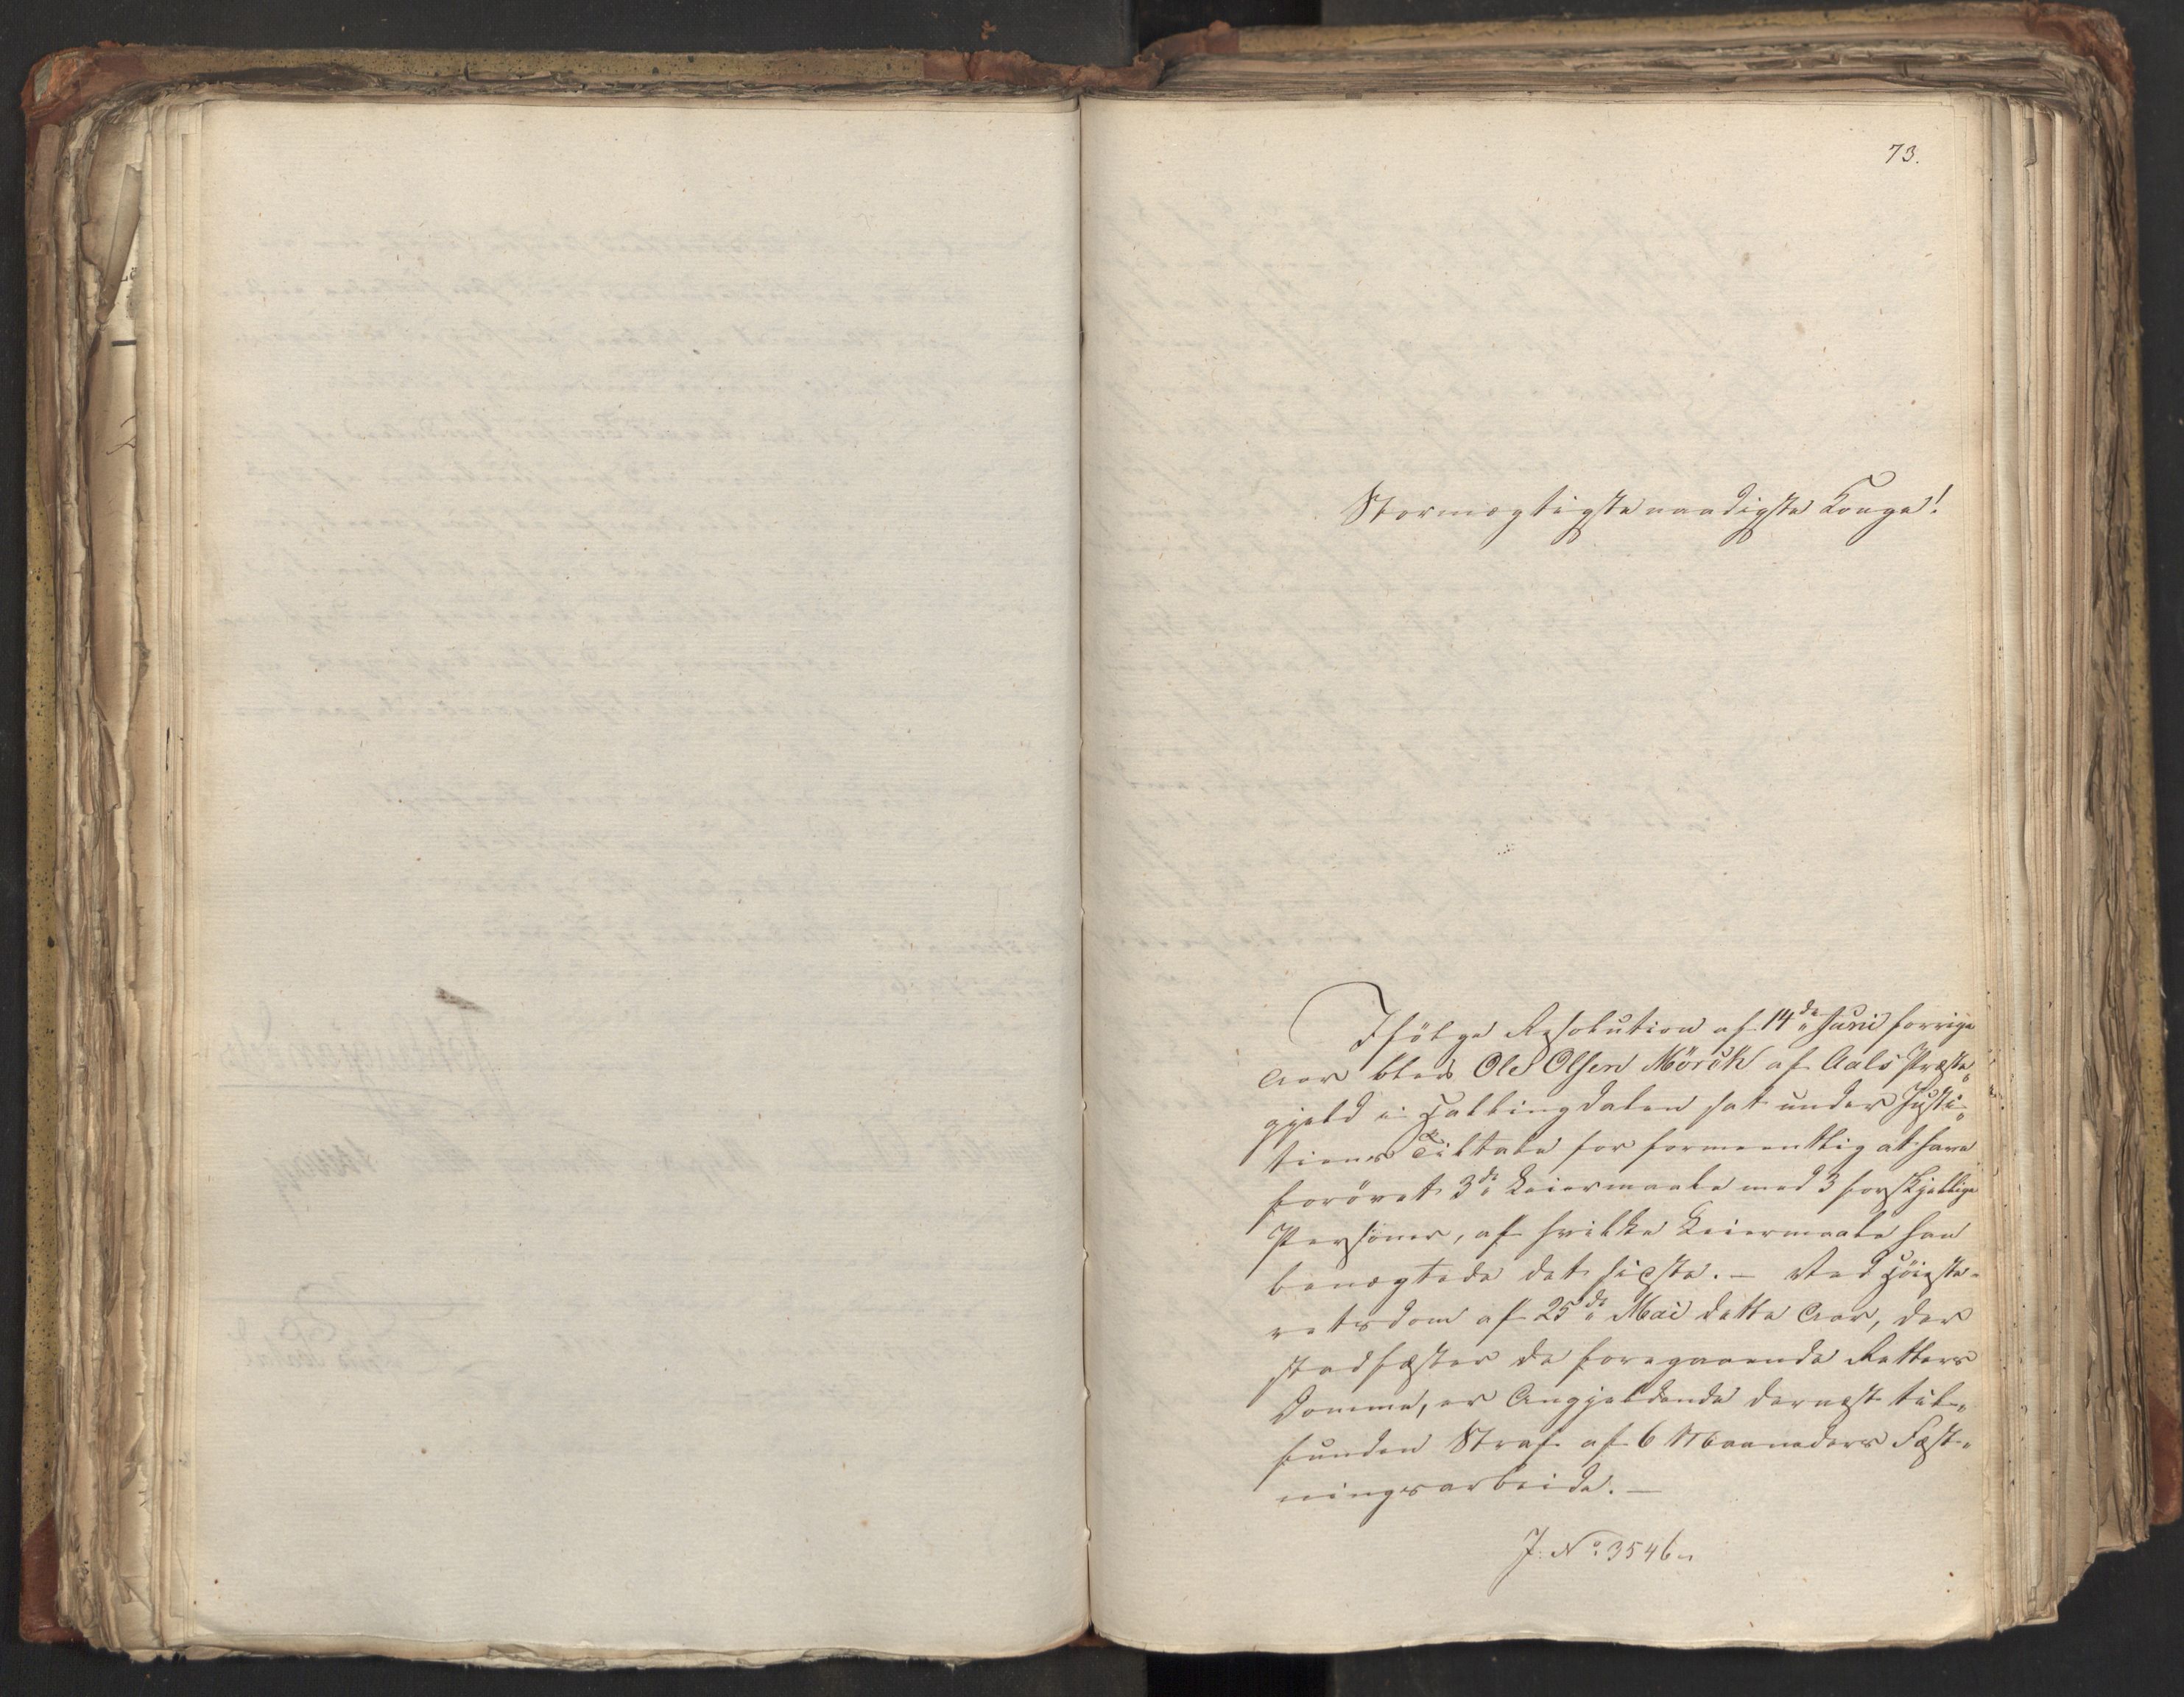 73.
Stormægtigste naadigste Konge!
Ifölge Resolution af 14de Juni forrige
Aar blev Ole Olsen Mörck af Aals Præste„
gjeld i Hallingdalen sat under Justi„
tiens Tiltale for formeentlig at have
forövet 3de Leiermaale med 3 forskjellige
Personer, af hvilke Leiermaale han
benægtede det sidste. – Ved Höieste„
retsdom af 25de Mai dette Aar, der
stadfæster de foregaaende Retters
Domme, er Angjeldende dernæst til„
funden Straf af 6 Maaneders Fæst„
ningsarbeide. –
J. No. 3546